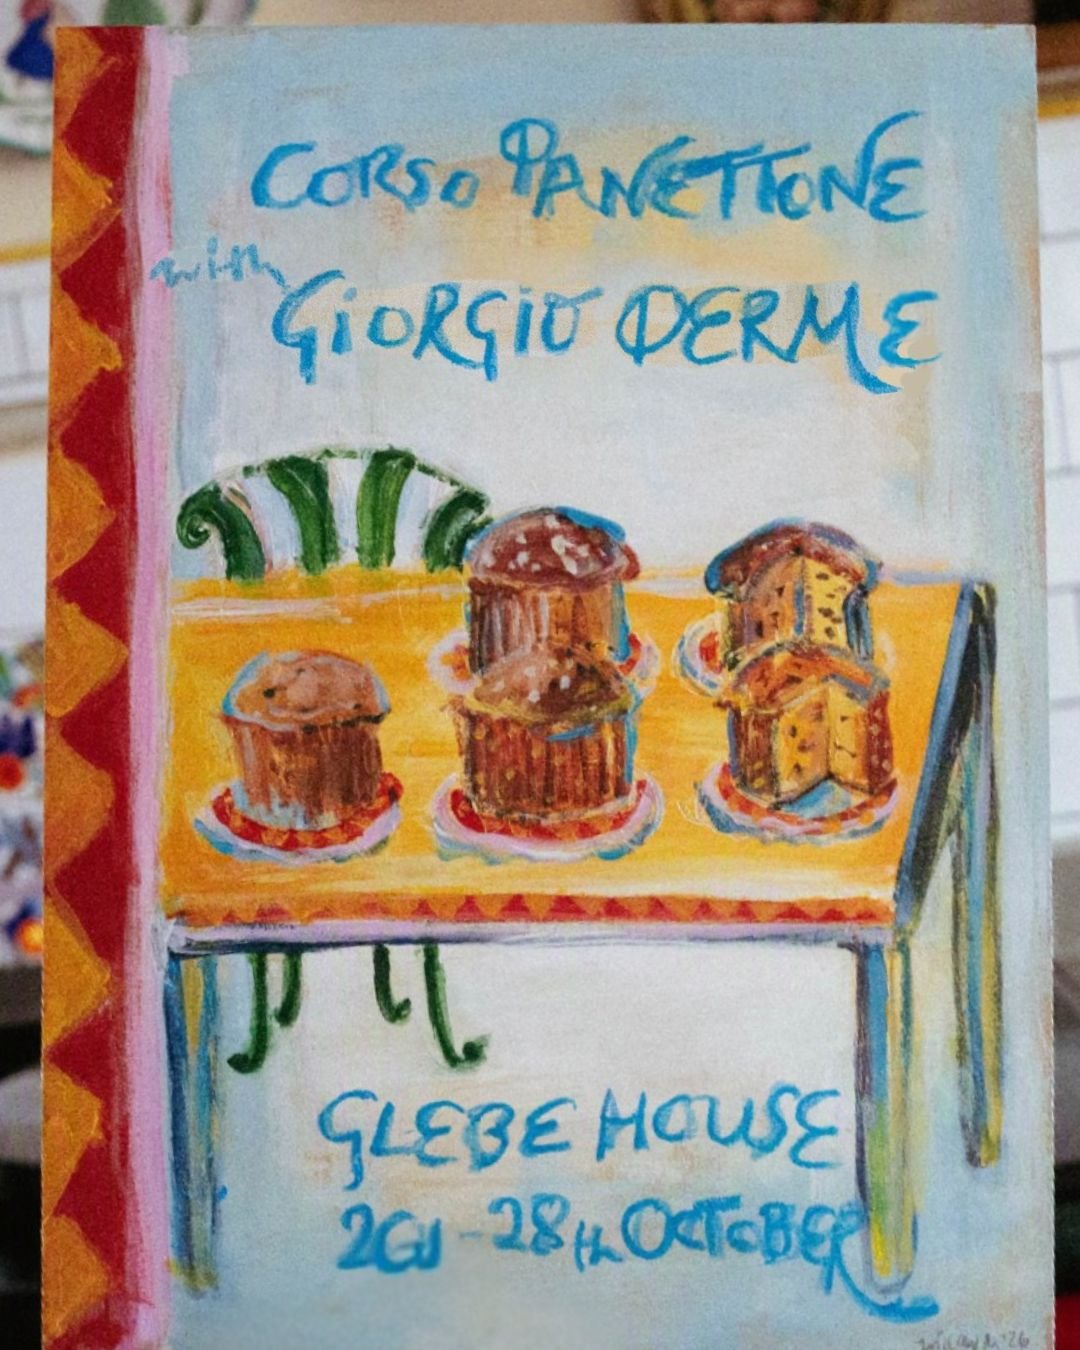 CORSO PANETTONE
with
GIORGIO DERME
GLEBE HOUSE
-28th OCTOBER
'26